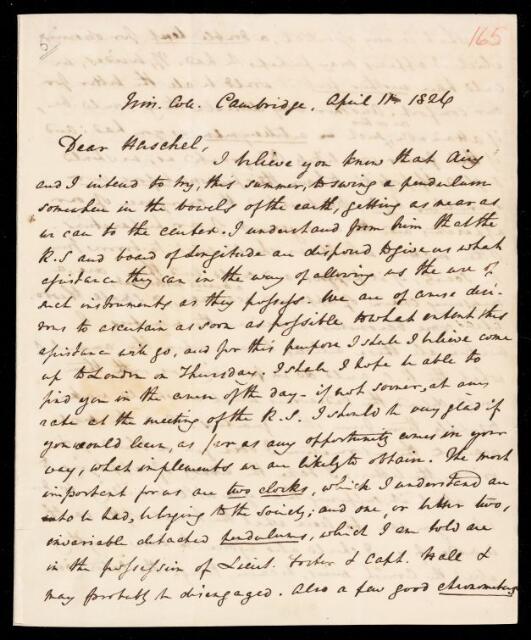 165
5
Trin. Coll. Cambridge, April 11th 1826
Dear Herschel,
I believe you know that Airy
and I intend to try, this summer, to swing a pendulum
somewhere in the bowels of the earth, getting as near as
we can to the center. I understand from him that the
R.S and board of Longitude are disposed to give us what
assistance they can in the way of allowing us the use of
such instruments as they possess. We are of course desi-
rous to ascertain as soon as possible to what extent this
assistance will go, and for this purpose I shall I believe come
up to London on Thursday. I shall I hope be able to
find you in the course of the day - if not sooner, at any
rate at the meeting of the R.S. I should be very glad if
you would learn, as far as any opportunity comes in your
way, what implements we are likely to obtain. The most
important for us are two clocks, which I understand are
to be had, belonging to the society; and one, or better two,
invariable detached pendulums, which I am told are
in the possession of Lieut. Foster & Capt. Hall &
may probably be disengaged. Also a few good chronometers